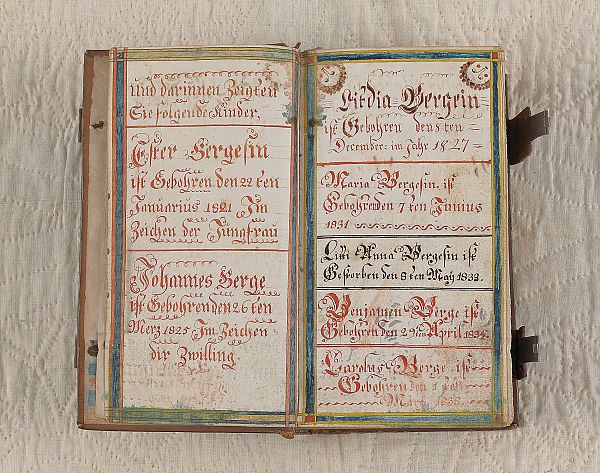 und darinnen Zeigten
Sie folgende Kinder,
Ester Bergesin
ist Gebohren den 22 ten
Januarius 1821 Im
Zeichen der Jungfrau
Johannes Berge
ist Gebohren den 26 ten
Merz 1825 Im Zeichen
dir Zwilling
Litdia Bergein
ist Gebohren den 8 ten
December: im Jahr 1827
Maria Bergesin ist
Gebohren den 7 ten Junius
1831
Anna Bergesin ist
Gestorben den 8 ten May 1833.
Benjamen Berge ist
Gebohren den 29 ten April 1834.
Carolus Berge ist
Gebohren den ten
1838.